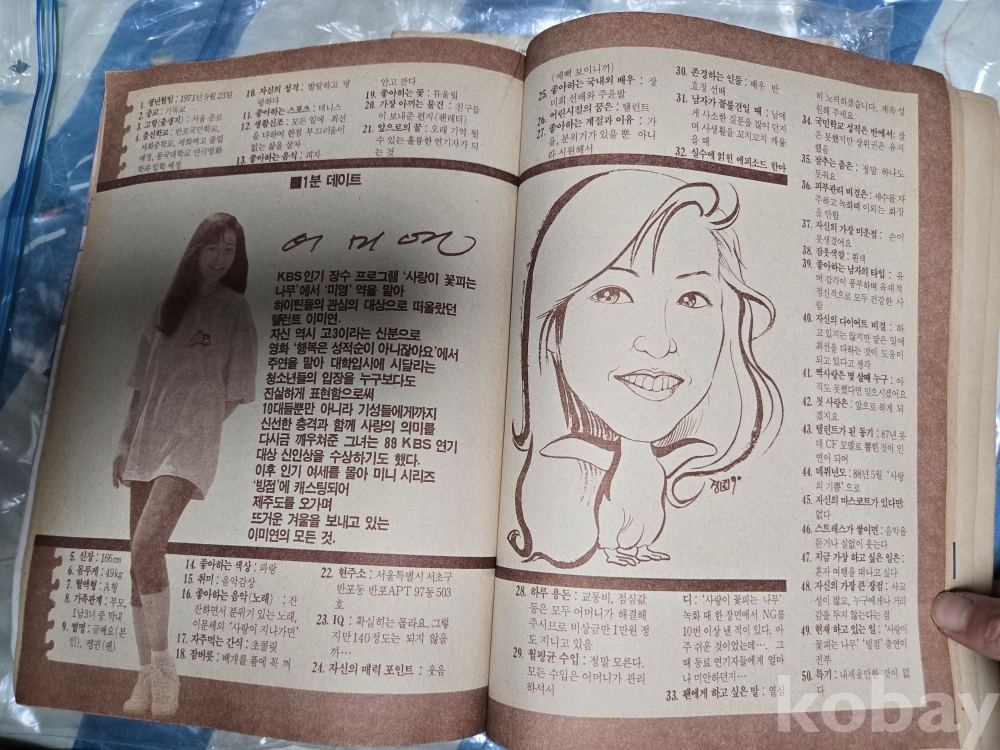 1. 생년월일 : 1971년 9월 23일
2. 종교 : 기독교
3. 고향(출생지) : 서울 종로
4. 출신학교 : 반포국민학교,
서화중학교, 세화여고 졸업
예정, 동국대학교 연극영화
학과 입학 예정
10. 자신의 성격 : 발랄하고 명
랑하다
11. 좋아하는 스포츠 : 테니스
12. 생활신조 : 모든 일에 최선
을 다하여 한점 부끄러움이
없는 삶을 살자
13. 좋아하는 음식 : 피자
안고 잔다
19. 좋아하는 꽃 : 튜율립
20. 가장 아끼는 물건 : 친구들
이 보내준 편지(팬레터)
21. 앞으로의 꿈 : 오래 기억 될
수 있는 훌륭한 연기자가 되
는 것
■1분 데이트
이미연
KBS인기 장수 프로그램 '사랑이 꽃피는
나무'에서 '미영' 역을 맡아
하이틴들의 관심의 대상으로 떠올랐던
탤런트 이미연.
자신 역시 고3이라는 신분으로
영화 '행복은 성적순이 아니잖아요'에서
주연을 맡아 대학입시에 시달리는
청소년들의 입장을 누구보다도
진실하게 표현함으로써
10대들뿐만 아니라 기성들에게까지
신선한 충격과 함께 사랑의 의미를
다시금 깨우쳐준 그녀는 89 KBS 연기
대상 신인상을 수상하기도 했다.
이후 인기 여세를 몰아 미니 시리즈
'빙점'에 캐스팅되어
제주도를 오가며
뜨거운 겨울을 보내고 있는
이미연의 모든 것.
5. 신장 : 166cm
6. 몸무게 : 49kg
7. 혈액형 : A형
8. 가족관계 : 부모,
1남3녀 중 막내
9. 별명 : 글쎄요(본
인), 팽귄(팬)
14. 좋아하는 색상 : 파랑
15. 취미 : 음악감상
16. 좋아하는 음악(노래) : 잔
잔하면서 분위기 있는 노래,
이문세의 '사랑이 지나가면'
17. 자주먹는 간식 : 초콜릿
18. 잠버릇 : 베개를 품에 꼭 껴
22. 현주소 : 서울특별시 서초구
반포동 반포APT 97동 503
호
23. IQ : 확실히는 몰라요. 그렇
지만 140정도는 되지 않을
까…
24. 자신의 매력 포인트 : 웃음
(예뻐 보이니까)
25. 좋아하는 국내외 배우 : 장
미희 선배와 주윤발
26. 어린시절의 꿈은 : 탤런트
27. 좋아하는 계절과 이유 : 가
을, 분위기가 있을 뿐 아니
라 시원해서
30. 존경하는 인물 : 배우 반
효정 선배
31. 남자가 꼴불견일 때 : 남에
게 사소한 질문을 많이 던지
며 사생활을 꼬치꼬치 캐물
을 때
32. 실수에 얽힌 에피소드 한마
정회90.
28. 하루 용돈 : 교통비, 점심값
등은 모두 어머니가 해결해
주시므로 비상금만 1만원 정
도 지니고 있음
29. 월평균 수입 : 정말 모른다.
모든 수입은 어머니가 관리
하셔서
디 : '사랑이 꽃피는 나무'
녹화 때 한 장면에서 NG를
10번 이상 낸 적이 있다. 아
주 쉬운 것이었는데…. 그
때 동료 연기자들에게 얼마
나 미안하던지…
33. 팬에게 하고 싶은 말 : 열심
히 노력하겠습니다. 계속 성
원해 주세요.
34. 국민학교 성적은 반에서 : 잘
은 못했지만 상위권은 유지
했다
35. 잘추는 춤은 : 정말 하나도
못춰요
36. 피부관리 비결은 : 세수를 자
주하고 녹화때 이외는 화장
을 안함
37. 자신의 가장 미운점 : 손이
못생겼어요
38. 잠옷색깔 : 흰색
39. 좋아하는 남자의 타입 : 유
머 감각이 풍부하며 육체적
정신적으로 모두 건강한 사
람
40. 자신의 다이어트 비결 : 하
고 있지는 않지만 맡은 일에
최선을 다하는 것이 도움이
되고 있다고 생각
41. 짝사랑은 몇 살때 누구 : 아
직도 못했다면 믿으시겠어요
42. 첫 사랑은 : 앞으로 하게 되
겠지요
43. 탤런트가 된 동기 : 87년 롯
데 CF 모델로 뽑힌것이 인
연이 되어
44. 데뷔년도 : 88년 5월 '사랑
의 기쁨'으로
45. 자신의 마스코트가 있다면 :
없다
46. 스트레스가 쌓이면 : 음악을
듣거나 실없이 웃는다
47. 지금 가장 하고 싶은 일은 :
혼자 여행을 떠나고 싶다
48. 자신의 가장 큰 장점 : 사교
성이 많고, 누구에게나 거리
감을 두지 않는다는 점
49. 현재 하고 있는 일 : '사랑이
꽃피는 나무' '빙점' 출연이
전부
50. 특기 : 내세울만한 것이 없
다
kobay